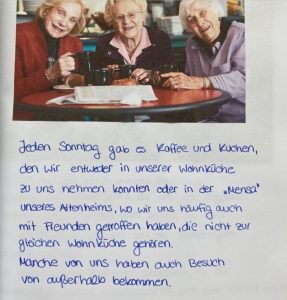 Jeden Sonntag gab es Kaffee und Kuchen,
den wir entweder in unserer Wohnküche
zu uns nehmen konnten oder in der „Mensa"
unseres Altenheims, wo wir uns häufig auch
mit Freunden getroffen haben, die nicht zur
gleichen Wohnküche gehören.
Manche von uns haben auch Besuch
von außerhalb bekommen.